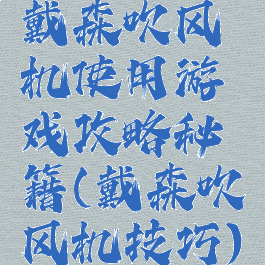 戴森吹风
机使用游
戏攻略秘
籍(戴森吹
风机技巧)